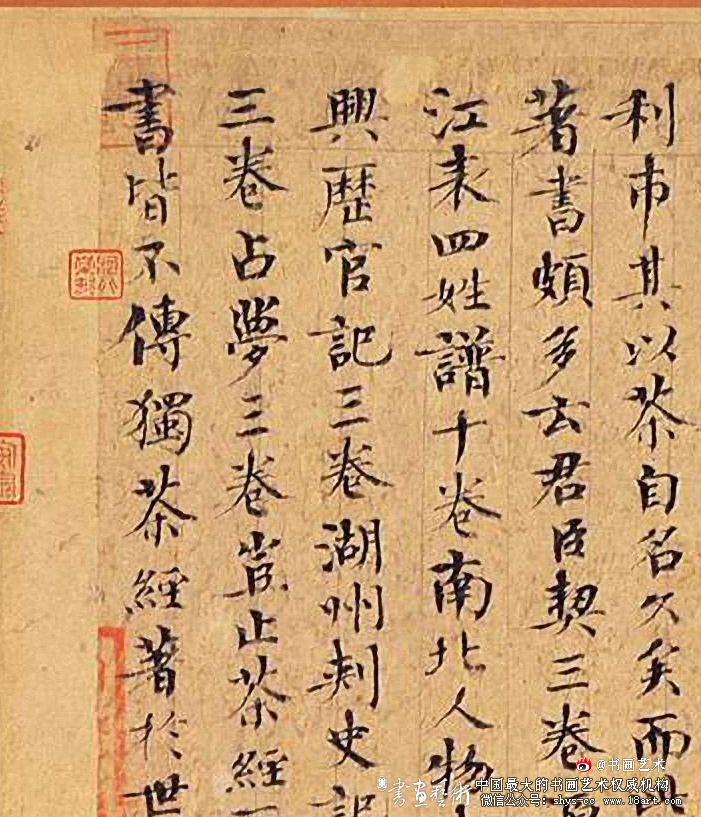 利市其以茶自名久矣而
著書頗多云君臣契三卷
江表四姓譜十卷南北人物
興歷官記三卷湖州刺史記
三卷占夢三卷豈止茶經
書皆不傳獨茶經著於世
@书画艺术
書畫藝術
中国最大的书画艺术权威机构
微信公众号：shys-cc www.18art.com